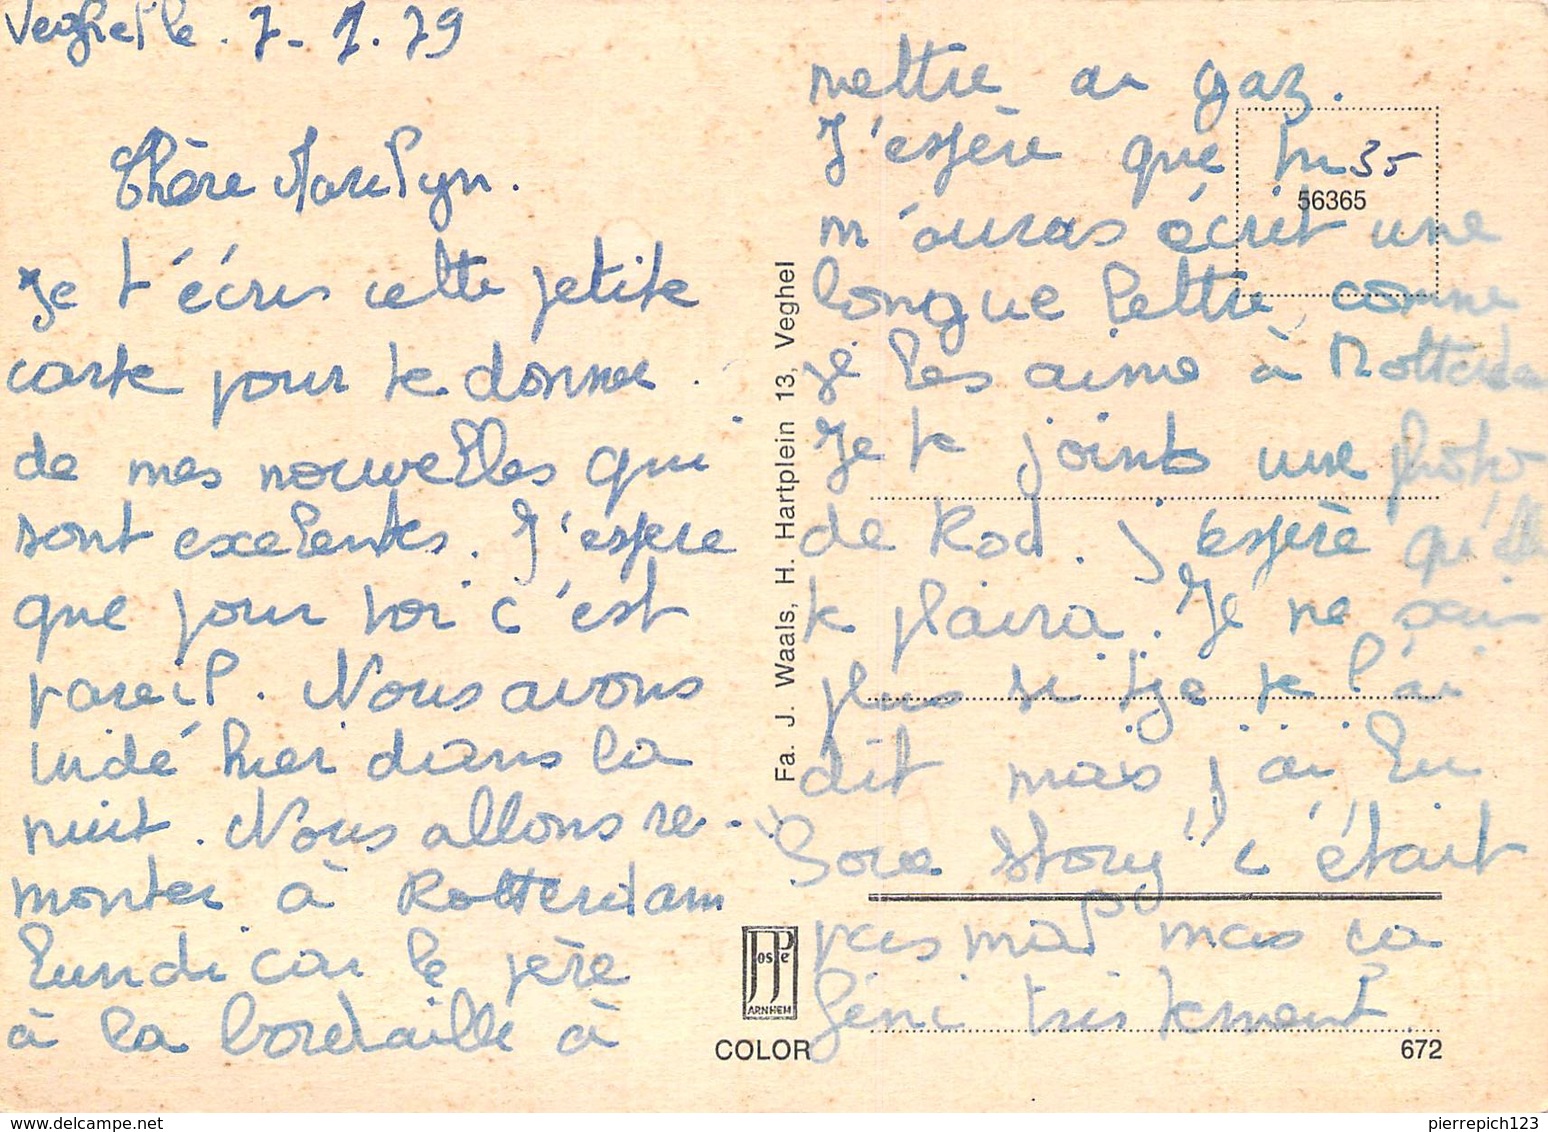 Veghel le . 7 - 1. 79
Chère Marilyn.
Je t'écris cette petite
carte pour te donner
de mes nouvelles qui
sont exelentes. J'espere
que pour toi c'est
pareil. Nous avons
hier dans la
nuit. Nous allons re-
monter à Rotterdam
Lundi car le père
à la bordaille à
mettre au gaz.
J'espère que tu
m'auras écrit une
longue lettre comme
je les aime à Rotterdam
Je te joints une photo
de Rod. J'espère qu'elle
te plaira. Je ne sais
plus si tje te l'ai
dit mais j'ai Lu
"Love Story" c'était
pas mal mais ca
fini tristement.
35
56365
Fa. J. Waals, H. Hartplein 13, Veghel
JosPé
ARNHEM
COLOR
672
pierrepich123